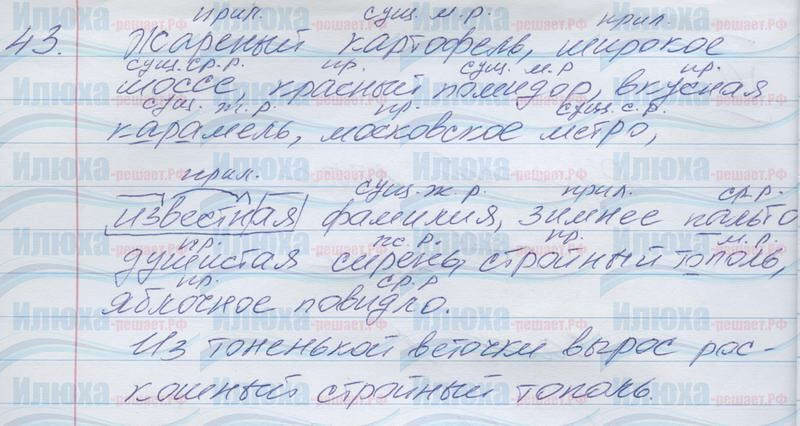 прил. сущ. м.р. прил.
43. Жареный картофель, широкое
сущ. ср. р. пр. сущ. м.р пр.
шоссе, красный помидор, вкусная
сущ. ж.р. пр. сущ. с.р.
карамель, московское метро,
прил. сущ. ж. р. прил. ср.р.
известная фамилия, зимнее пальто
пр. ж. р. пр. м.р.
душистая сирень, стройный тополь,
пр. ср.р
яблочное повидло.
Из тоненькой веточки вырос рос-
кошный стройный тополь.
Илюха-решает.РФ